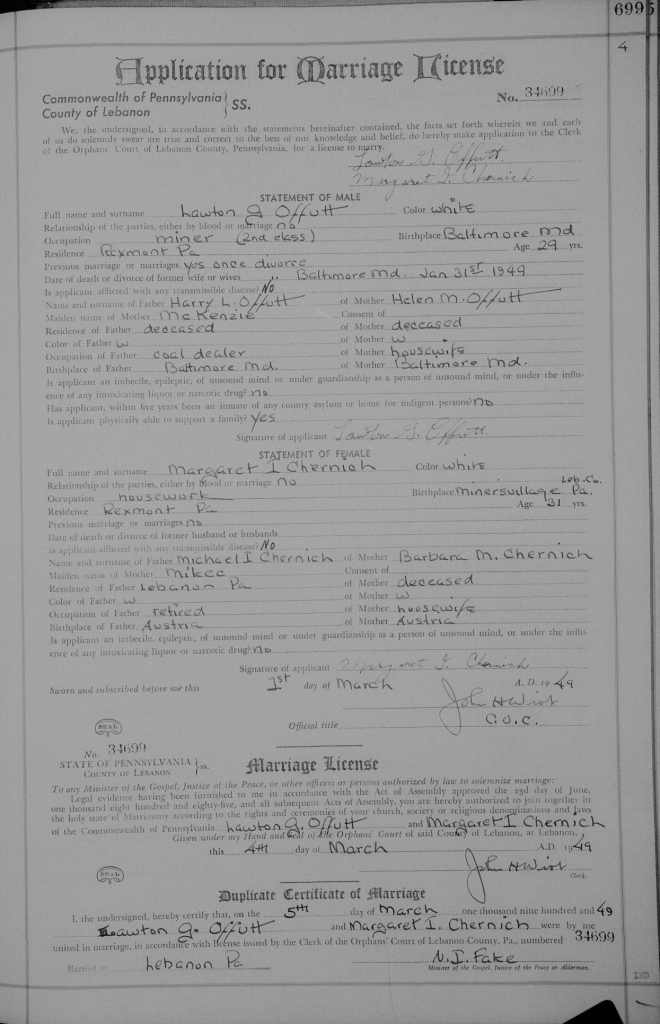 6995
4
Application for Marriage License
Commonwealth of Pennsylvania
County of Lebanon } SS.
No. 34699
We, the undersigned, in accordance with the statements hereinafter contained, the facts set forth wherein we and each
of us do solemnly swear are true and correct to the best of our knowledge and belief, do hereby make application to the Clerk
of the Orphans' Court of Lebanon County, Pennsylvania, for a license to marry.
Lawton G. Offutt
Margaret I. Chernich
STATEMENT OF MALE
Full name and surname Lawton G Offutt Color white
Relationship of the parties, either by blood or marriage no
Occupation miner (2nd class) Birthplace Baltimore Md
Residence Rexmont Pa Age 29 yrs.
Previous marriage or marriages yes once divorce
Date of death or divorce of former wife or wives " Baltimore Md. Jan 31st 1949
Is applicant afflicted with any transmissible disease? No
Name and surname of Father Harry L. Offutt of Mother Helen M. Offutt
Maiden name of Mother McKenzie Consent of
Residence of Father deceased of Mother deceased
Color of Father w of Mother w
Occupation of Father coal dealer of Mother housewife
Birthplace of Father Baltimore Md. of Mother Baltimore Md.
Is applicant an imbecile, epileptic, of unsound mind or under guardianship as a person of unsound mind, or under the influ-
ence of any intoxicating liquor or narcotic drug? no
Has applicant, within five years been an inmate of any county asylum or home for indigent persons? no
Is applicant physically able to support a family? yes
Signature of applicant Lawton G. Offutt
STATEMENT OF FEMALE
Full name and surname Margaret I Chernich Color white
Relationship of the parties, either by blood or marriage no
Leb. Co.
Occupation housework Birthplace Minersvillage Pa.
Residence Rexmont Pa Age 31 yrs.
Previous marriage or marriages no
Date of death or divorce of former husband or husbands
Is applicant afflicted with any transmissible disease? No
Name and surname of Father Michael I Chernich of Mother Barbara M. Chernich
Maiden name of Mother Consent of
Residence of Father Lebanon Pa of Mother deceased
Color of Father w of Mother w
Occupation of Father retired of Mother housewife
Birthplace of Father Austria of Mother Austria
Is applicant an imbecile, epileptic, of unsound mind or under guardianship as a person of unsound mind, or under the influ-
ence of any intoxicating liquor or narcotic drug? no
Signature of applicant Margaret I. Chernich
Sworn and subscribed before me this 1st day of March A. D. 1949
John H Wirt
Official title C.O.C.
SEAL
No. 34699
STATE OF PENNSYLVANIA
COUNTY OF LEBANON } ss
Marriage License
To any Minister of the Gospel, Justice of the Peace, or other officers or persons authorized by law to solemnize marriage:
Legal evidence having been furnished to me in accordance with the Act of Assembly approved the 23d day of June,
one thousand eight hundred and eighty-five, and all subsequent Acts of Assembly, you are hereby authorized to join together in
the holy state of Matrimony according to the rights and ceremonies of your church, society or religious denominations and laws
of the Commonwealth of Pennsylvania Lawton G. Offutt and Margaret I Chernich
Given under my Hand and Seal of the Orphans' Court of said County of Lebanon, at Lebanon,
this 4th day of March A.D. 1949
John H Wirt
Clerk
SEAL
Duplicate Certificate of Marriage
I, the undersigned, hereby certify that, on the 5th day of March one thousand nine hundred and 49
Lawton G. Offutt and Margaret I. Chernich were by me
united in marriage, in accordance with license issued by the Clerk of the Orphans' Court of Lebanon County, Pa., numbered 34699
Married at Lebanon Pa N. I. Fake
Minister of the Gospel, Justice of the Peace or Alderman.